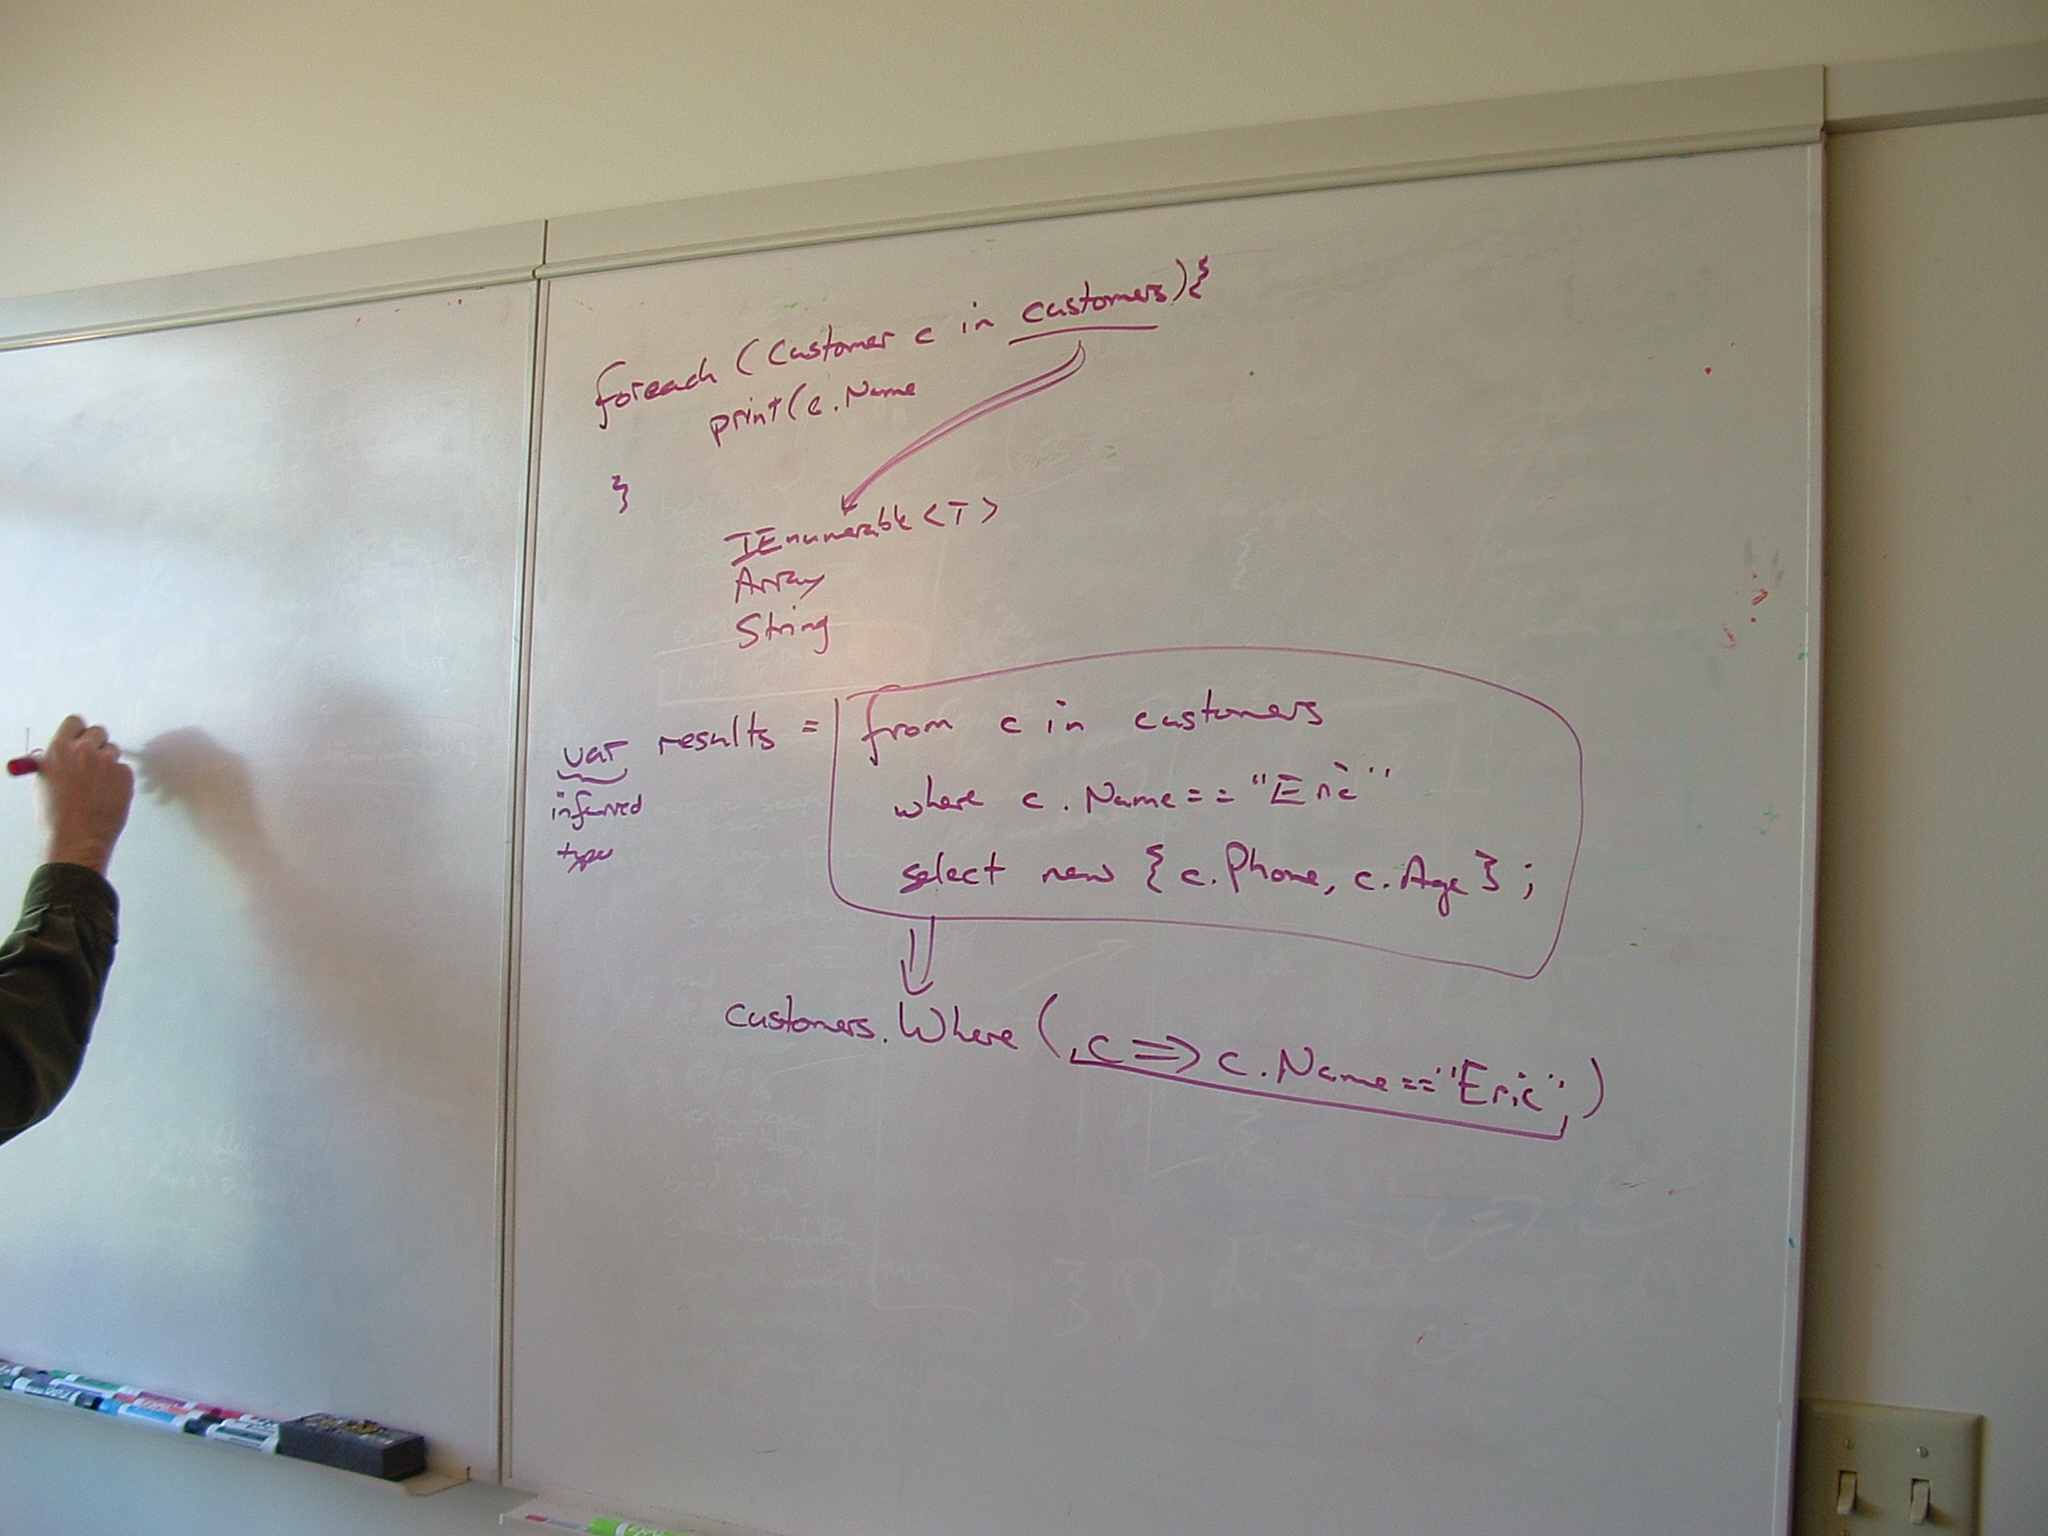 foreach (Customer c in customers){
print(c.Name
}
IEnumerable<T>
Array
String
var results = from c in customers
inferred
type
where c.Name == "Eric"
select new { c.Phone, c.Age };
customers.Where( c => c.Name=="Eric" )